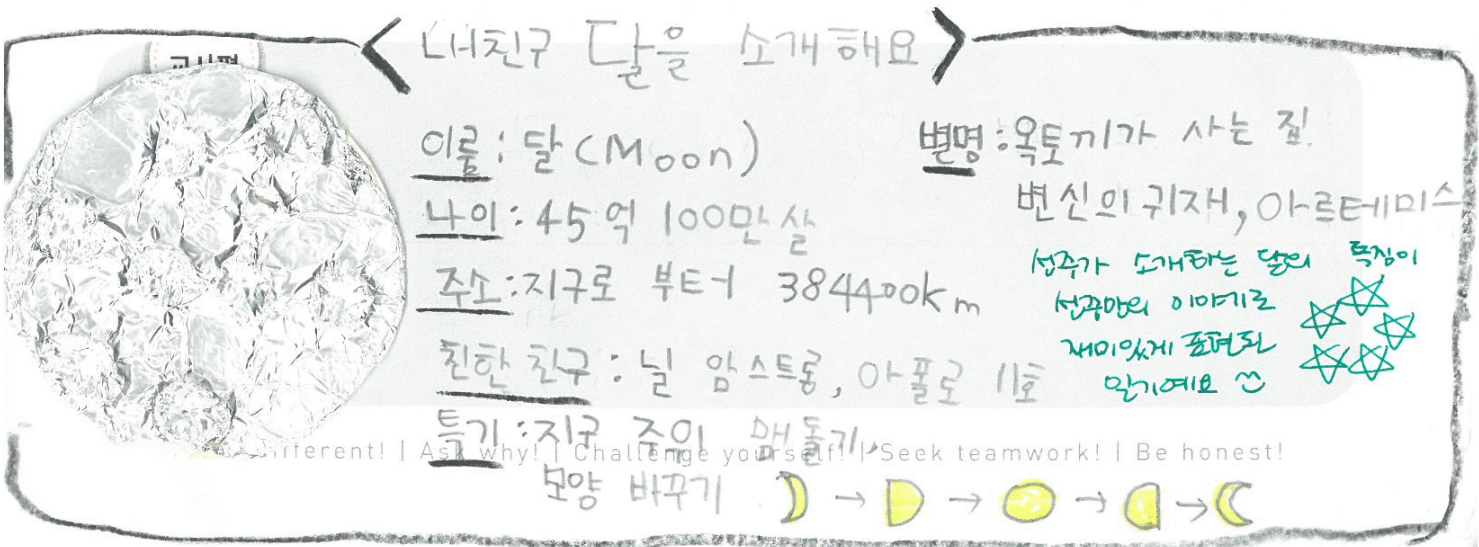 <내친구 달을 소개해요>
이름:달(Moon)
나이:45억 100만살
주소:지구로 부터 384400km
친한 친구:닐 암스트롱, 아폴로 11호
특기:지구 주위 맴돌기,
모양 바꾸기
별명:옥토끼가 사는 집.
변신의귀재, 아르테미스
선주가 소개하는 달의 특징이
선주만의 이야기로
재미있게 표현된
일기예요
ifferent! | Ask why! | Challenge yourself! | Seek teamwork! | Be honest!